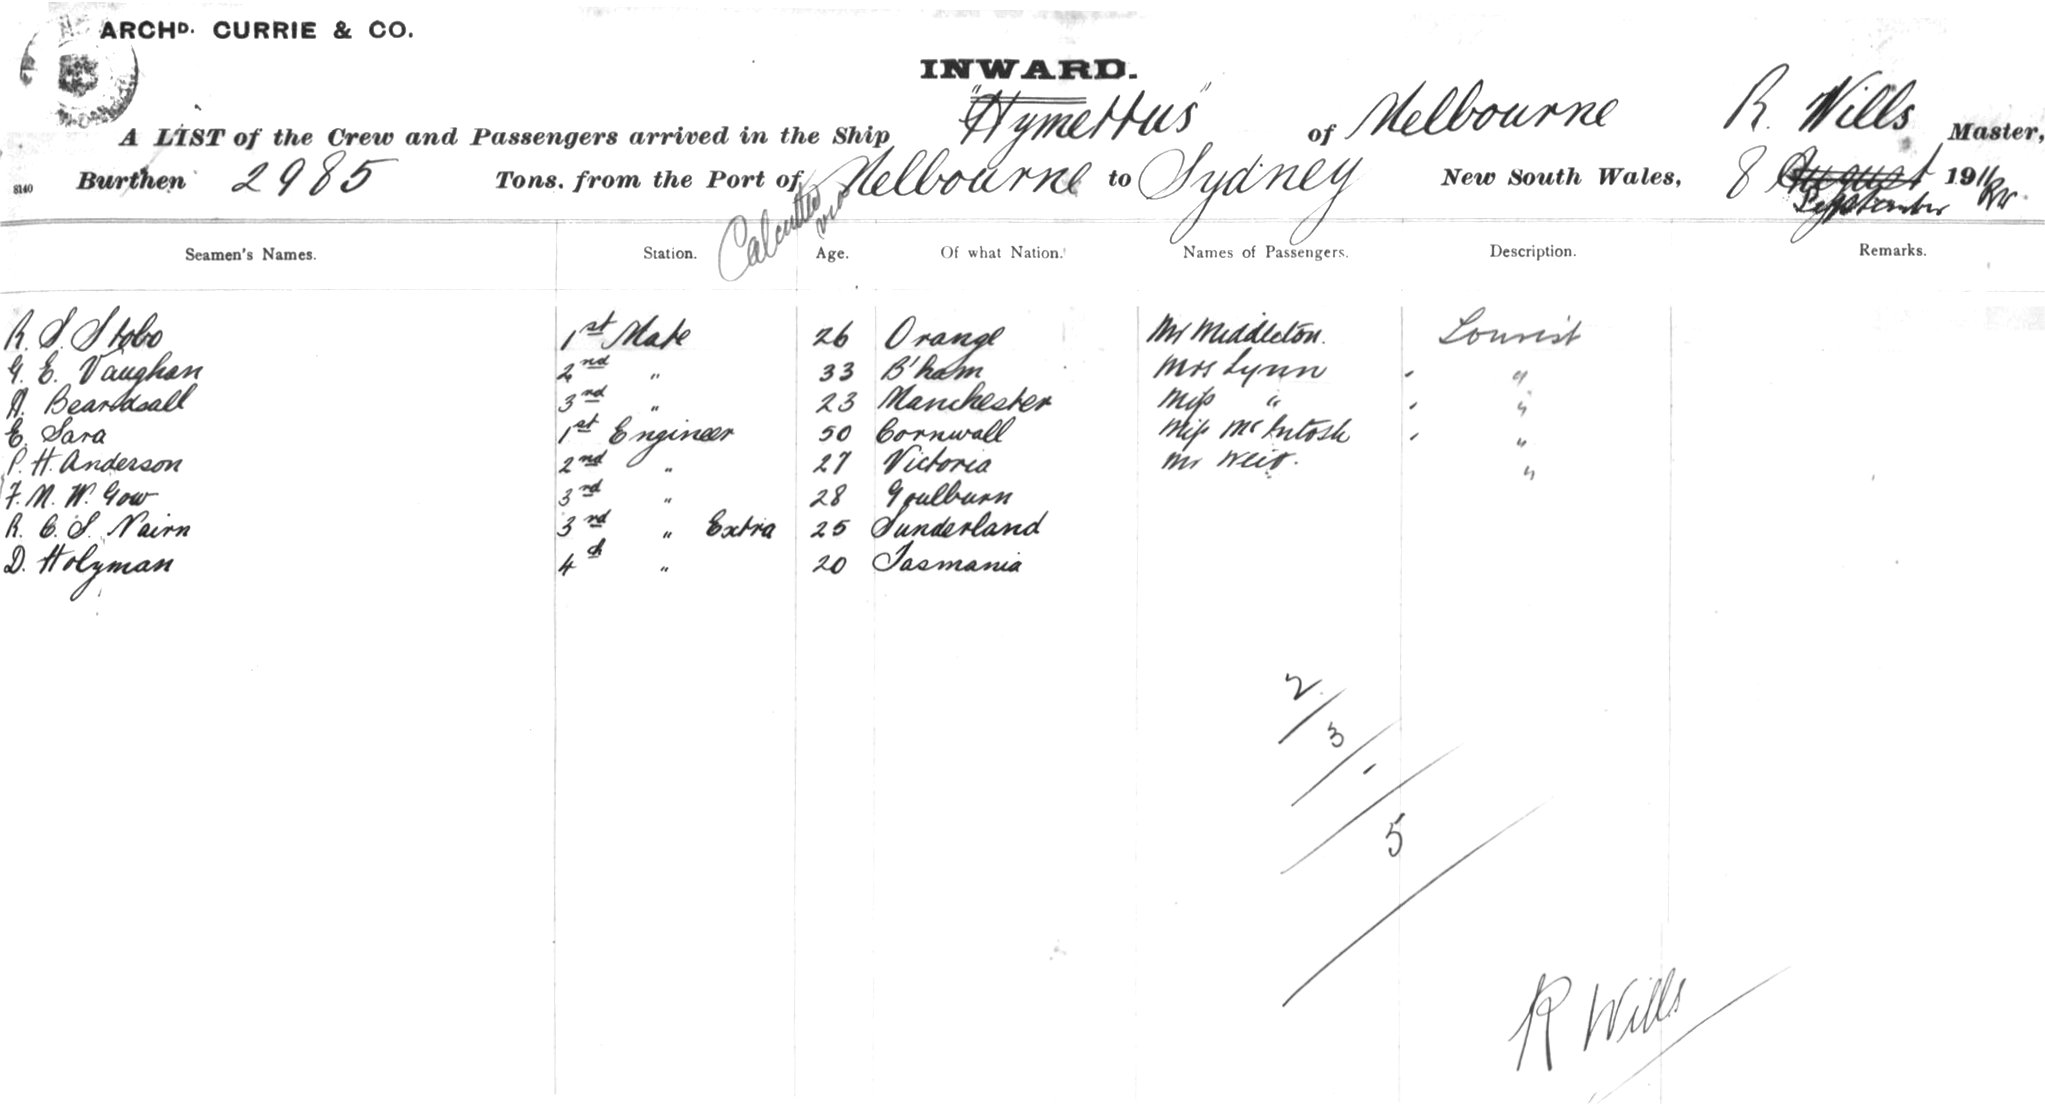 ARCHD. CURRIE & CO.
INWARD.
A LIST of the Crew and Passengers arrived in the Ship "Hymettus" of Melbourne R. Wills Master,
8140 Burthen 2985 Tons. from the Port of Calcutta via Melbourne to Sydney New South Wales, 8 August September 1911 RW
Seamen's Names. Station. Age. Of what Nation. Names of Passengers. Description. Remarks.
R. S. Stobo 1st Mate 26 Orange Mr Middleton. Tourist
G. E. Vaughan 2nd " 33 B'ham Mrs Lynn "
A. Beardsall 3rd " 23 Manchester Miss " "
E. Sara 1st Engineer 50 Cornwall Miss McIntosh "
P. H. Anderson 2nd " 27 Victoria Mr Weir. "
F. M. W. Gow 3rd " 28 Goulburn
R. C. S. Nairn 3rd " Extra 25 Sunderland
D. Holyman 4th " 20 Tasmania
2
3
5
R Wills